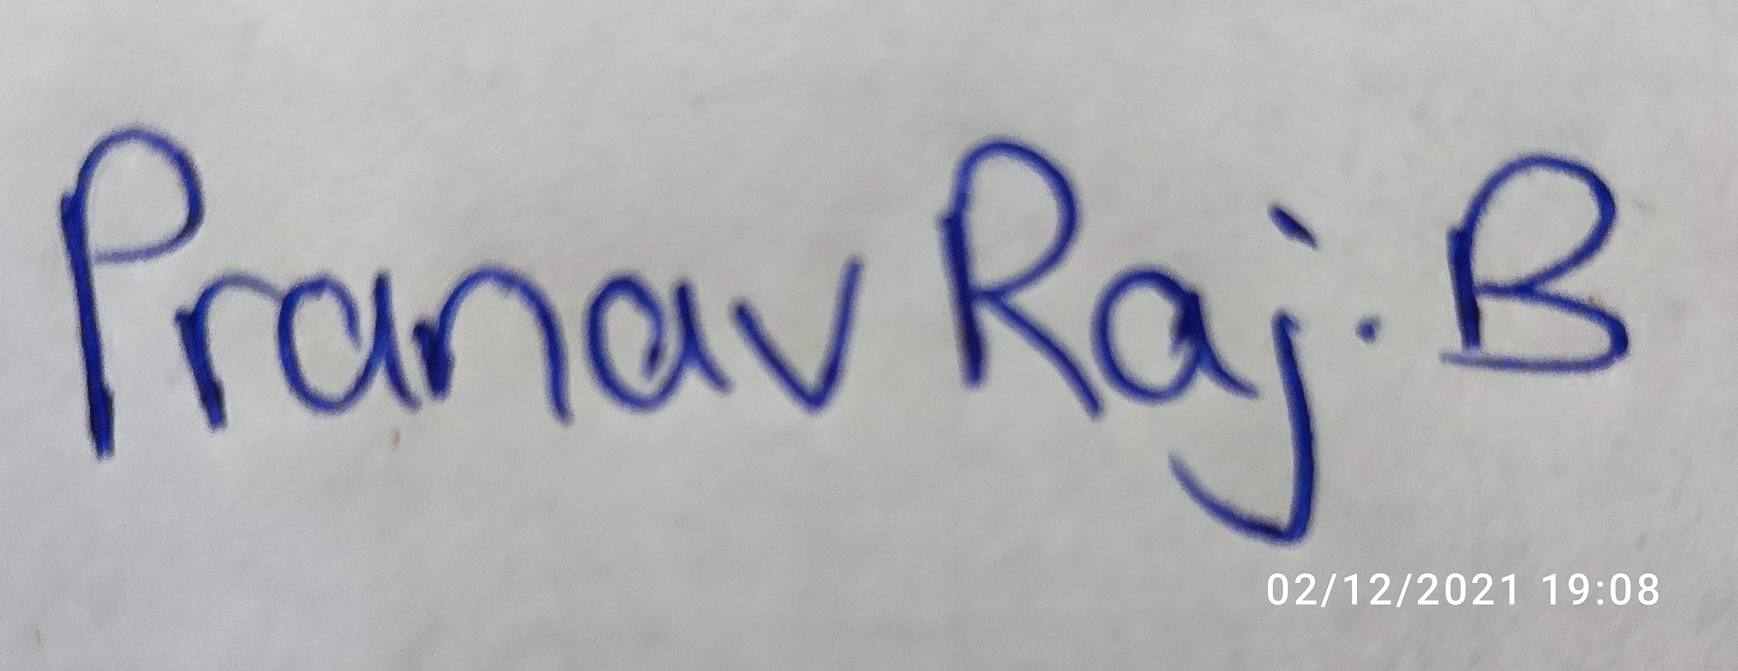 Pranav Raj. B
02/12/2021 19:08